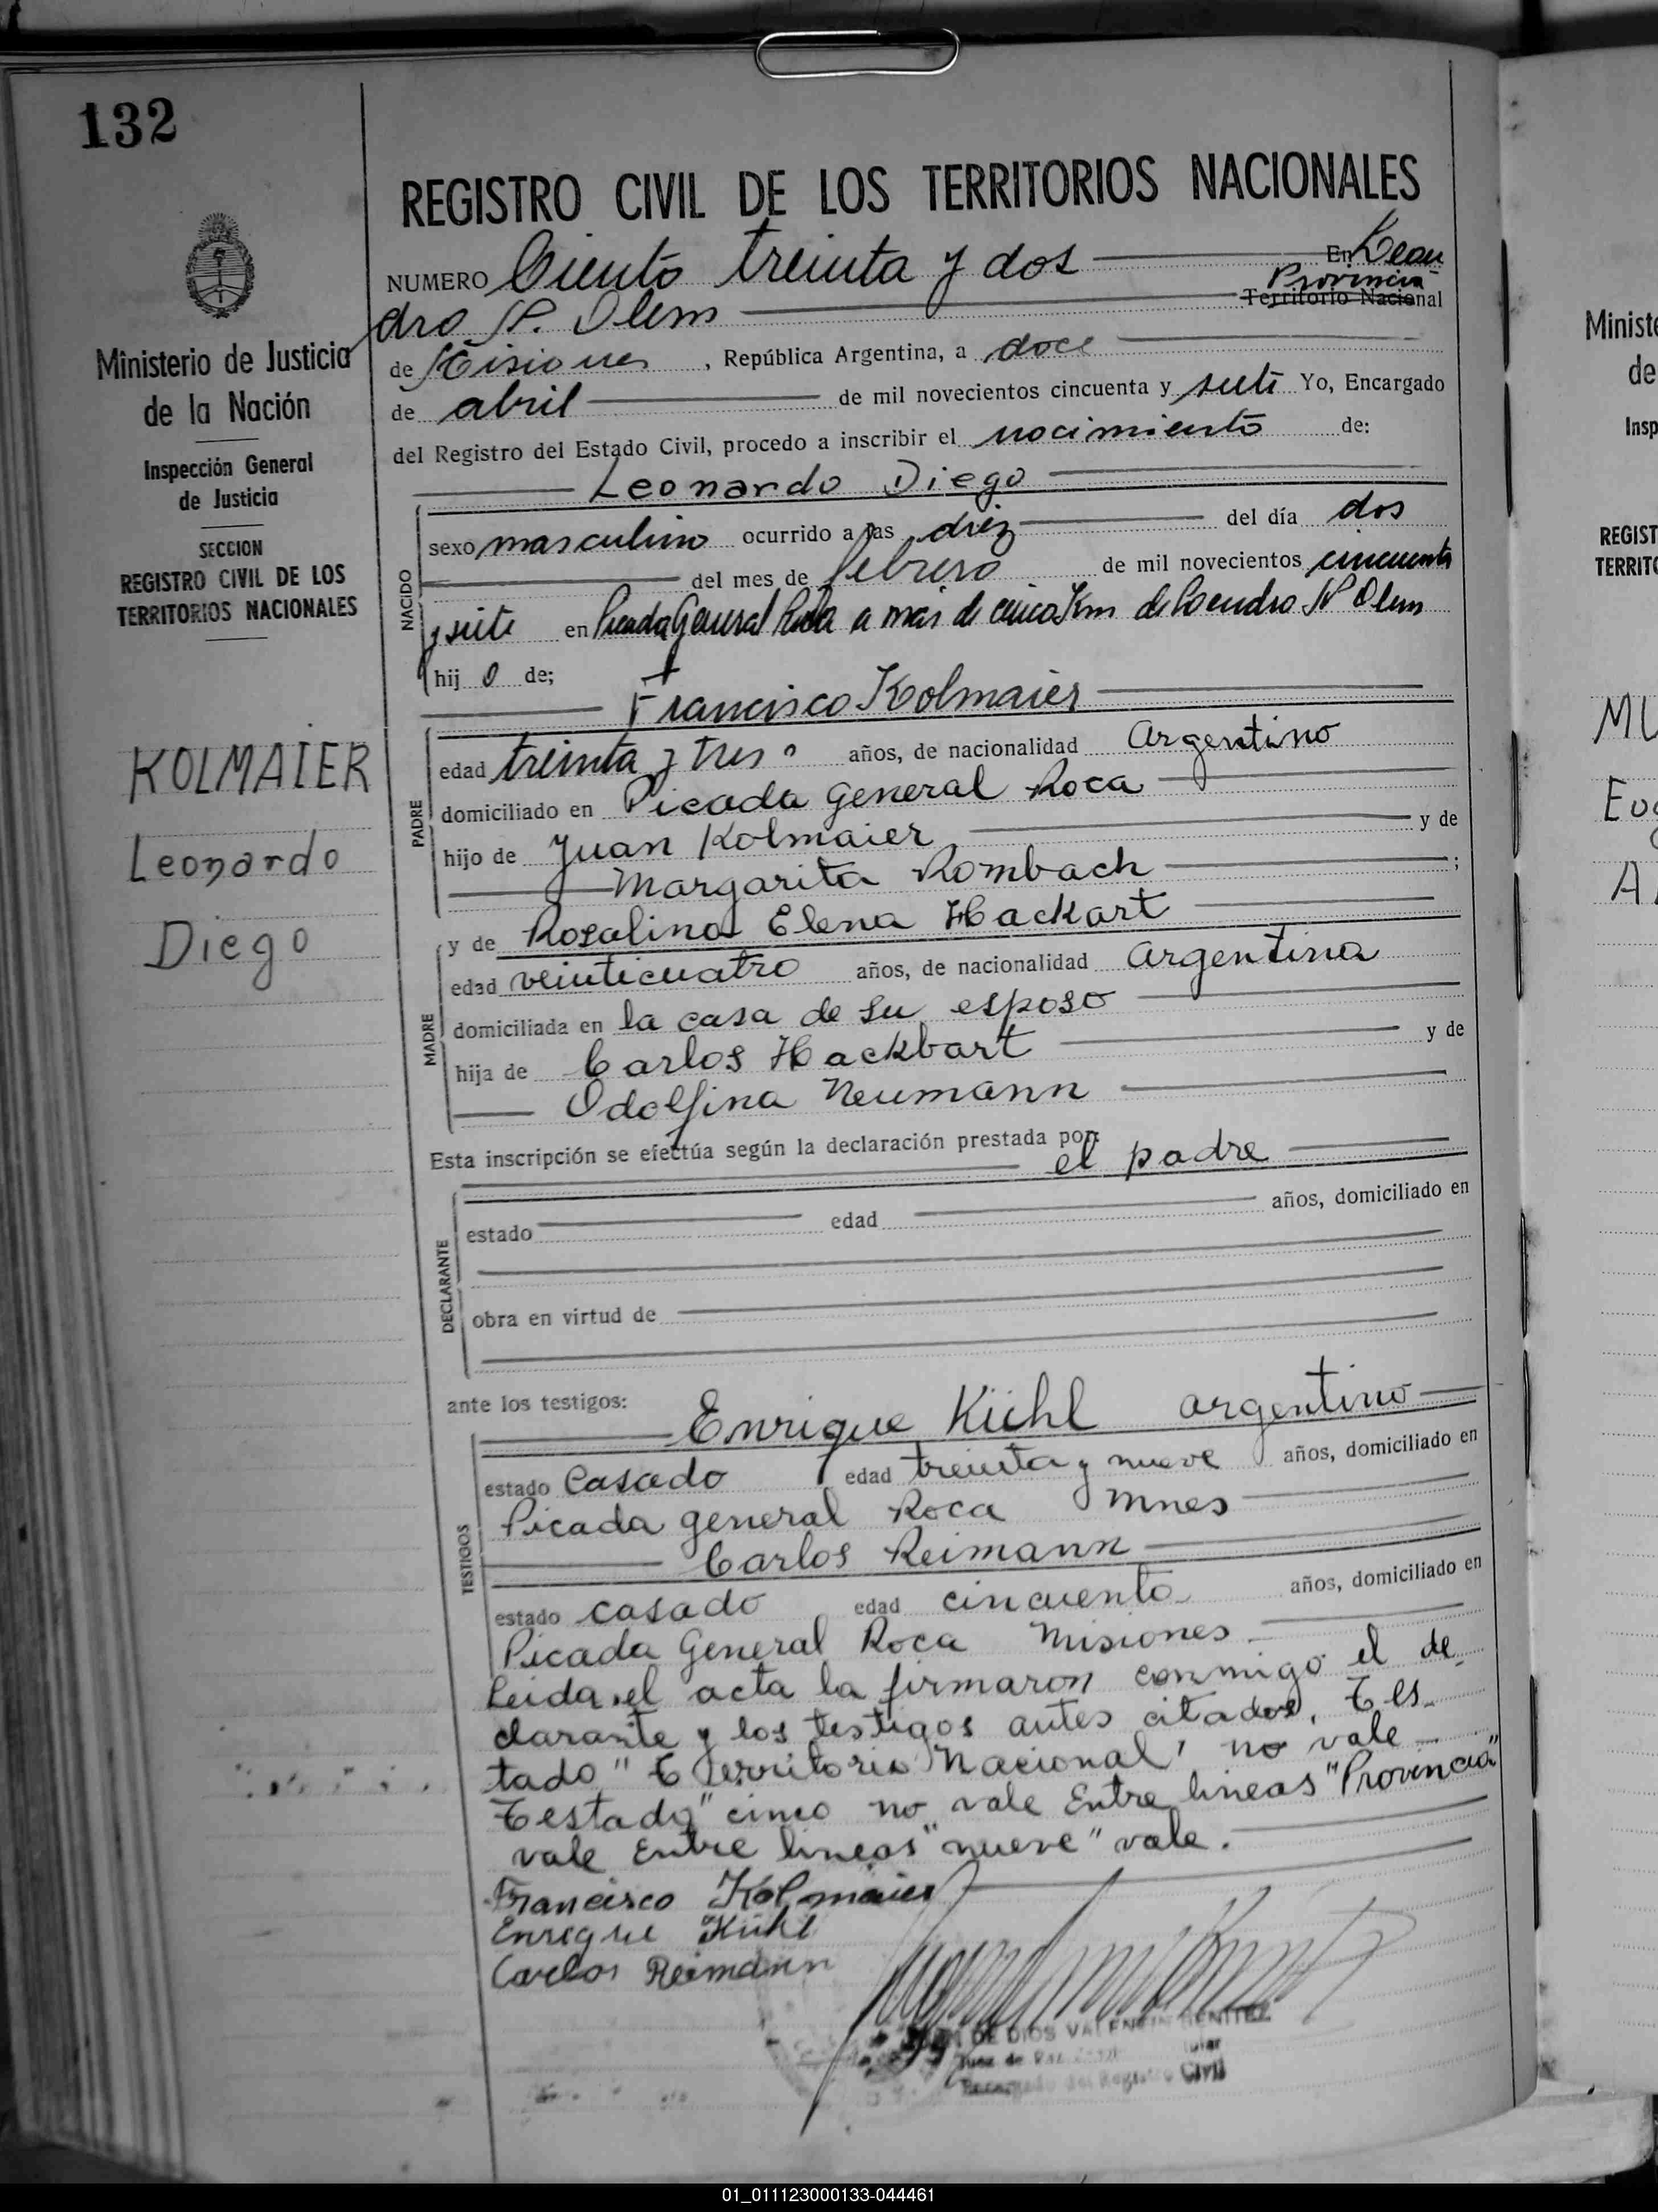 132
REGISTRO CIVIL DE LOS TERRITORIOS NACIONALES
NUMERO Ciento treinta y dos En Lean
Provincia
dro N. Alem Territorio Nacional
Ministerio de Justicia
de la Nación
Inspección General
de Justicia
SECCION
REGISTRO CIVIL DE LOS
TERRITORIOS NACIONALES
KOLMAIER
Leonardo
Diego
de Misiones, República Argentina, a doce
de abril de mil novecientos cincuenta y siete Yo, Encargado
del Registro del Estado Civil, procedo a inscribir el nacimiento de:
Leonardo Diego
NACIDO
sexo masculino ocurrido a las diez del día dos
del mes de febrero de mil novecientos cincuenta
y siete en Picada General Roca a más de cinco Km de Leandro N Alem
hij o de;
Francisco Kolmaier
PADRE
edad treinta y tres años, de nacionalidad Argentino
domiciliado en Picada General Roca
hijo de Juan Kolmaier y de
Margarita Rombach ;
y de Rosalina Elena Hackart
MADRE
edad veinticuatro años, de nacionalidad Argentina
domiciliada en la casa de su esposo
hija de Carlos Hackbart y de
Adolfina Neumann
Esta inscripción se efectúa según la declaración prestada por:
el padre
DECLARANTE
estado edad años, domiciliado en
obra en virtud de
ante los testigos:
Enrique Kühl argentino
TESTIGOS
estado Casado edad treinta y nueve años, domiciliado en
Picada general Roca Mnes
Carlos Reimann
estado casado edad cincuenta años, domiciliado en
Picada General Roca Misiones
Leida el acta la firmaron conmigo el de
clarante y los testigos antes citados, Tes
tado "Territorio Nacional" no vale
Testado "cinco no vale Entre lineas "Provincia"
vale Entre lineas "nueve" vale.
Francisco Kolmaier
Enrique Kühl
Carlos Reimann
DE DIOS VALENTIN BENITEZ
Juez de Paz
Encargado del Registro Civil
Ministe
de
Insp
REGIST
TERRIT
MU
Eug
A
01_011123000133-044461